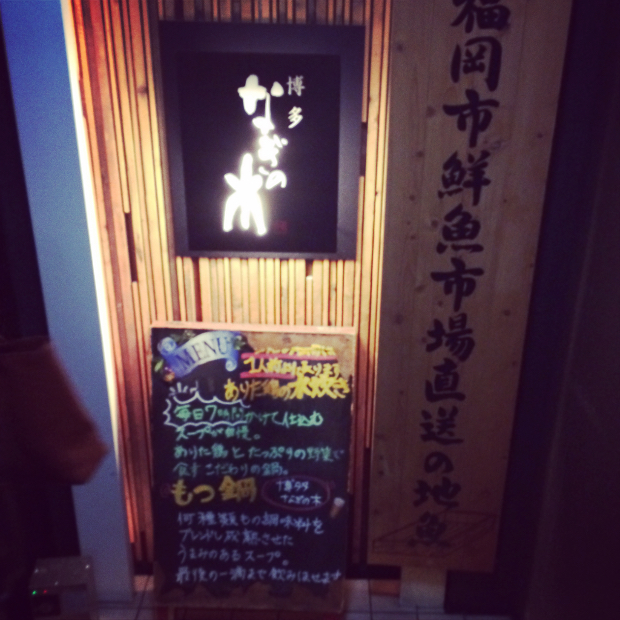 博多
なぎの木
福岡市鮮魚市場直送の地魚
MENU
ありた鶏の水炊き
毎日7時間かけて仕込む
スープが自慢。
ありた鶏とたっぷりの野菜で
食すこだわりの鍋。
もつ鍋
博多
なぎの木
何種類もの調味料を
ブレンドし成熟させた
うまみのあるスープ。
最後の一滴まで飲みほせます